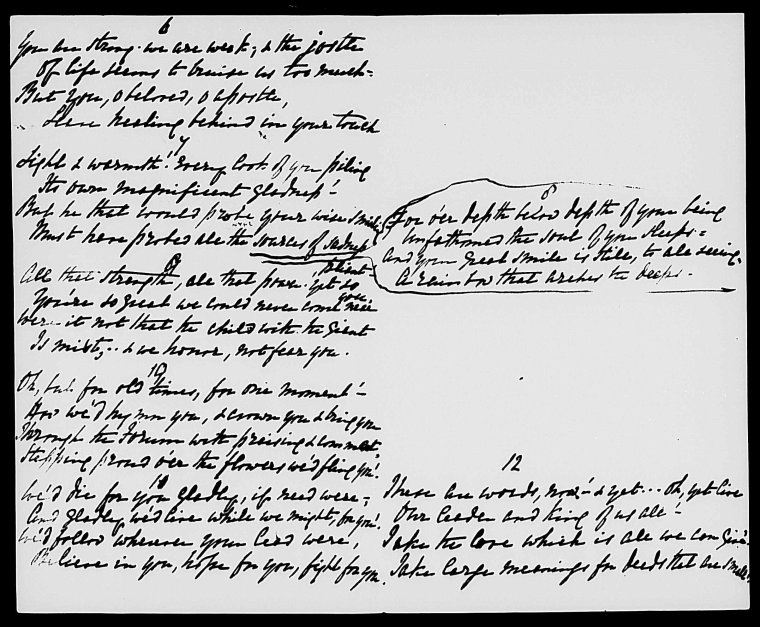 6
You are strong - we are weak; & the jostle
Of life seems to bruise us too much =
But you, o beloved, o apostle,
Leave healing behind in your touch
7
Light & warmth! Every look of you piling
Its own magnificent gladness! -
But he that would probe your wise smiling
Must have probed all the sources of sadness
8
For o'er depth below depth of your being
Unfathomed the soul of you sleeps =
And your great smile is still, to all seeing,
A rainbow that arches the deeps -
9
All that strength, all that power! patient
yet so
You're so great we could never come near
you
Were it not that the child with the Giant
Is mixt, .. & we honor, not fear you.
10
Oh, but for old times, for one moment! -
How we'd hymn you, & crown you & bring you
Through the Forum with praising & comment,
Stepping proud o'er the flowers we'd fling you!
11
We'd die for you gladly, if need were, -
And gladly we'd live while we might, for you!
We'd follow wherever your lead were,
Believe in you, hope for you, fight for you.
12
These are words, now! - & yet ... oh, yet live
Our leader and King of us all! -
Take the love which is all we can give -
Take large meanings for deeds that are small!